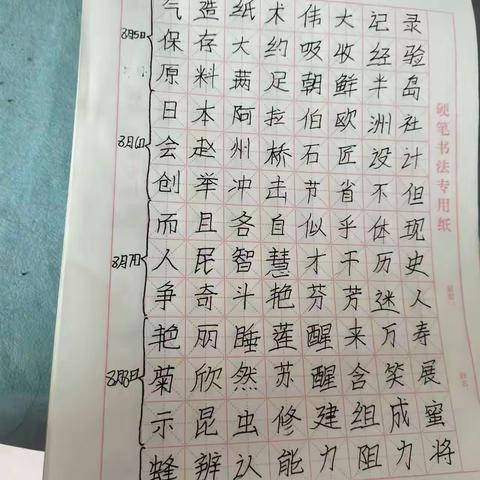 气造纸术伟大记录
8月5日
保存大约吸收经验
原料满足朝鲜半岛
日本阿拉伯欧洲社
8月6日
会赵州桥石匠设计
创举冲击节省不但
而且各自似乎体现
8月7日
人民智慧才干历史
争奇斗艳芬芳迷人
艳丽睡莲醒来万寿
8月8日
菊欣然苏醒含笑展
示昆虫修建组成蜜
蜂辨认能力阻力将
硬笔书法专用纸